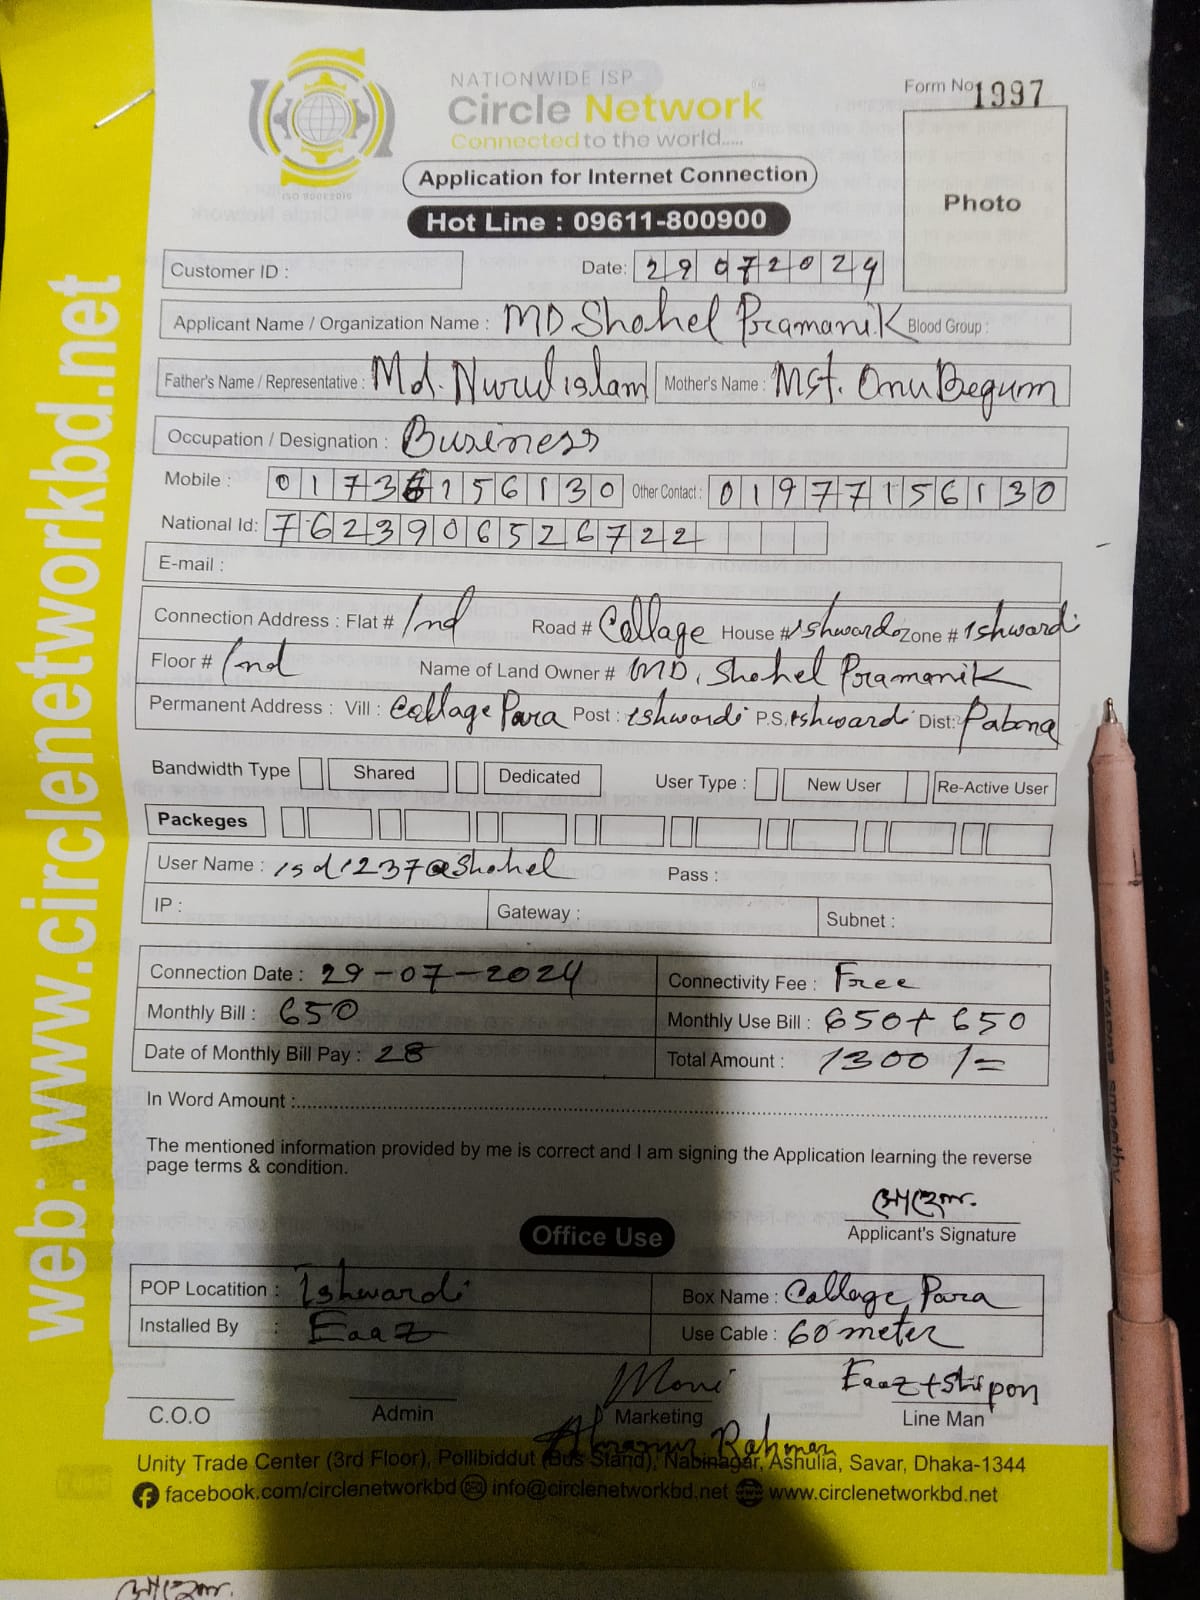 NATIONWIDE ISP
Circle Network
Connected to the world.....
ISO 9001:2015
Form No 1997
Application for Internet Connection
Hot Line : 09611-800900
Photo
Customer ID :
Date: 29072024
Applicant Name / Organization Name : MD. Shohel Pramanik Blood Group :
Father's Name / Representative : Md. Nurul islam Mother's Name : Mst. Onu Begum
Occupation / Designation : Business
Mobile : 01736156130 Other Contact : 01977156130
National Id: 7623906526722
E-mail :
Connection Address : Flat # 1nd Road # Collage House # Ishwardi Zone # Ishwardi
Floor # 1nd Name of Land Owner # MD. Shohel Pramanik
Permanent Address : Vill : Collage Para Post : ishwardi P.S. ishwardi Dist: Pabna
Bandwidth Type Shared Dedicated User Type : New User Re-Active User
Packeges
User Name : isd1237@shohel Pass :
IP : Gateway : Subnet :
Connection Date : 29-07-2024 Connectivity Fee : Free
Monthly Bill : 650 Monthly Use Bill : 650+650
Date of Monthly Bill Pay : 28 Total Amount : 1300/=
In Word Amount :
The mentioned information provided by me is correct and I am signing the Application learning the reverse
page terms & condition.
সোহেল
Applicant's Signature
Office Use
POP Locatition : Ishwardi Box Name : Collage Para
Installed By : Eaaz Use Cable : 60 meter
Moni Eaaz + Shipon
C.O.O Admin Marketing Line Man
Rahman
Unity Trade Center (3rd Floor), Pollibiddut (Bus Stand), Nabinagar, Ashulia, Savar, Dhaka-1344
facebook.com/circlenetworkbd info@circlenetworkbd.net www.circlenetworkbd.net
web: www.circlenetworkbd.net
সোহেল